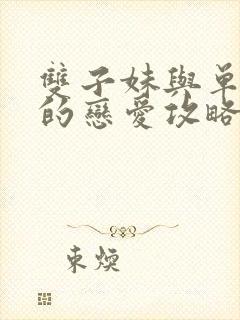 雙子妹與單
的戀愛攻略
東煐